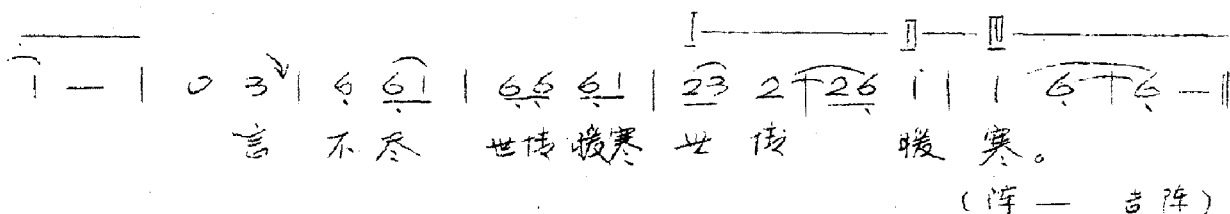 I —— II — III ——
1 — | 0 3 | 6 61 | 66 61 | 23 2 | 26 i | 1 6 | 6 — ||
言 不 尽 世传暖寒 世 传 暖 寒。
(阵 — 吉阵)